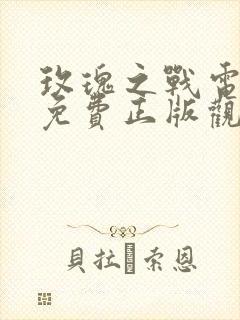 玫瑰之戰電
免費正版觀
貝拉索恩